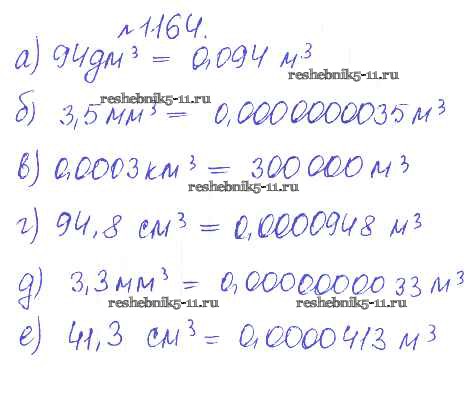 №1164.
а) 94дм³ = 0,094 м³
reshebnik5-11.ru
reshebnik5-11.ru
б) 3,5 мм³ = 0,0000000035 м³
в) 0,0003км³ = 300 000 м³
reshebnik5-11.ru
г) 94,8 см³ = 0,0000948 м³
д) 3,3мм³ = 0,0000000033 м³
reshebnik5-11.ru reshebnik5-11.ru
е) 41,3 см³ = 0,0000413 м³